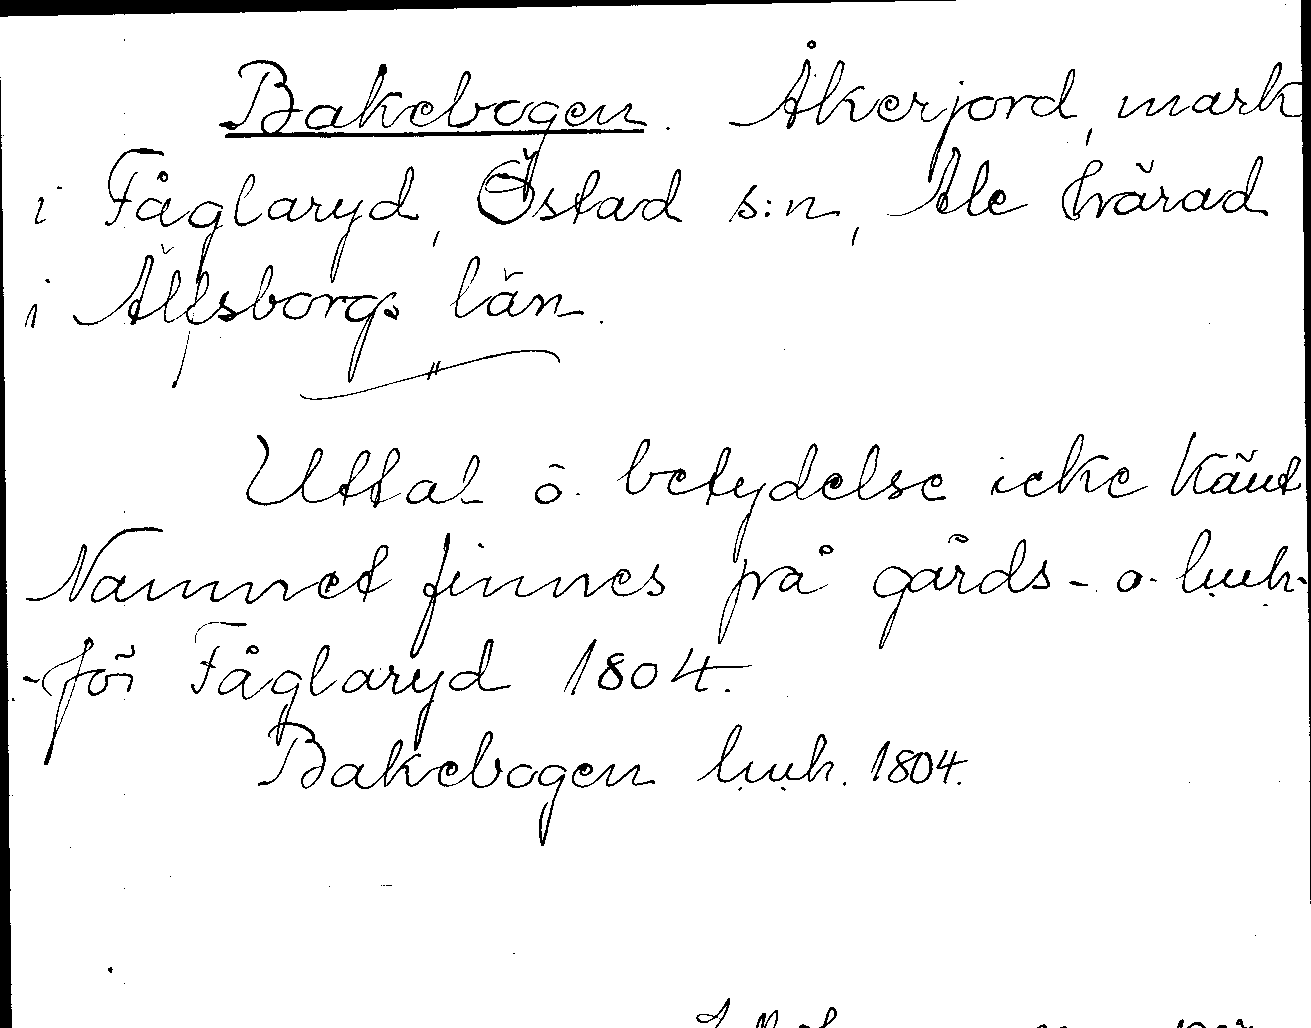 Bakebogen. Åkerjord, mark
i Fåglaryd, Östad s:n, Ale härad
i Älfsborgs län.
Uttal o. betydelse icke känt
Namnet finnes på gårds- o.
-för Fåglaryd 1804.
Bakebogen 1804.